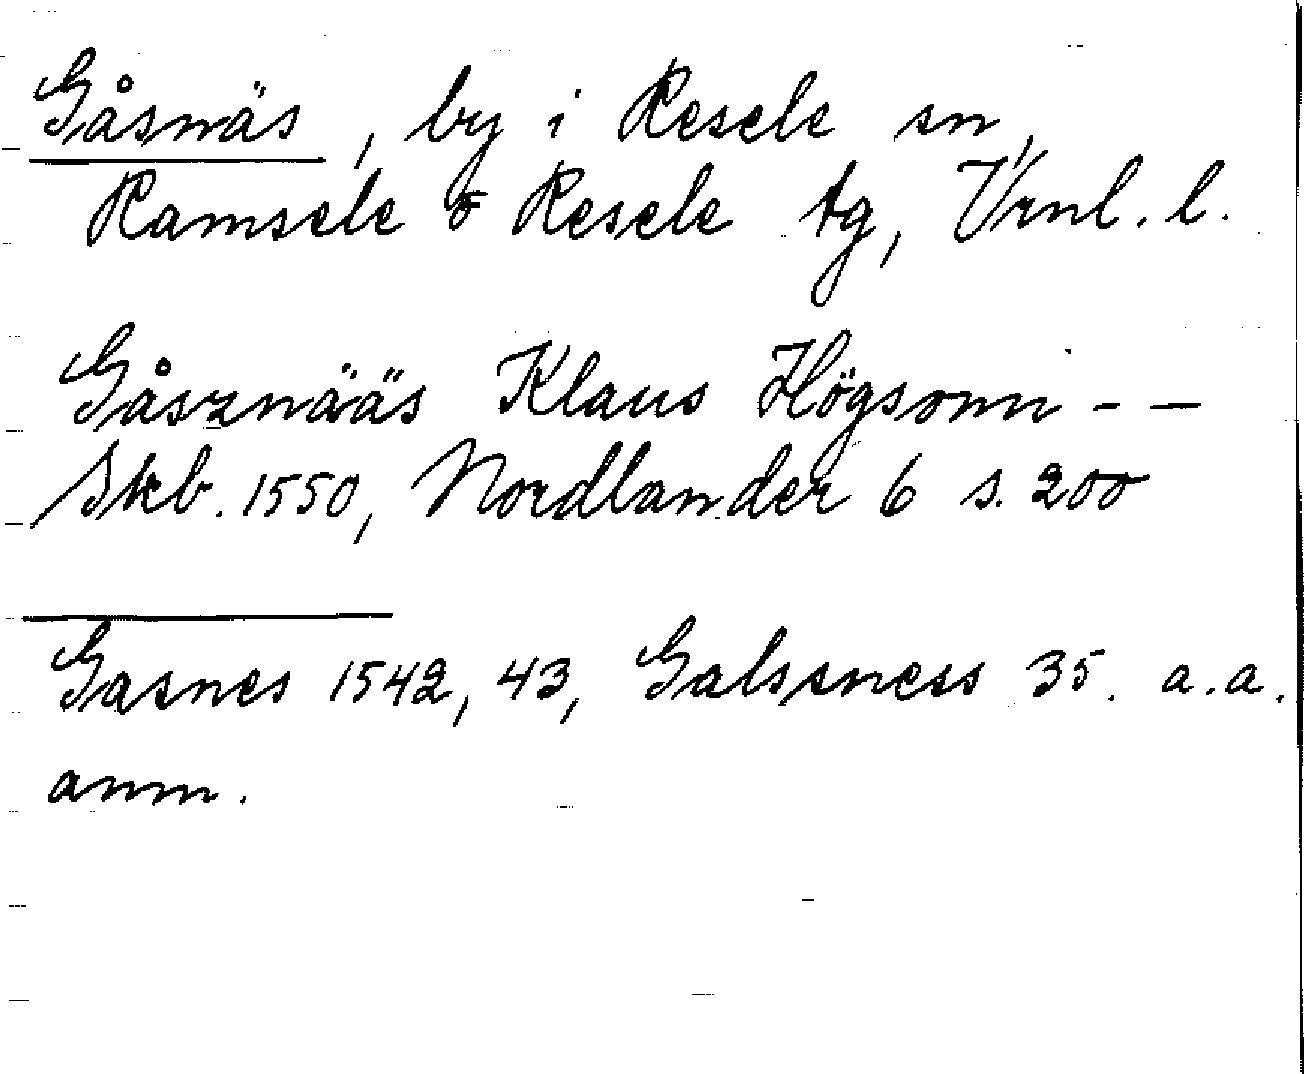 Gåsnäs, by i Resele sn,
Ramsele o Resele tg, Vrnl. l.
Gåsznääs Klaus Högsonn - -
Skb. 1550, Nordlander 6 s. 200
Gasnes 1542, 43, Galssness 35. a.a.
anm.